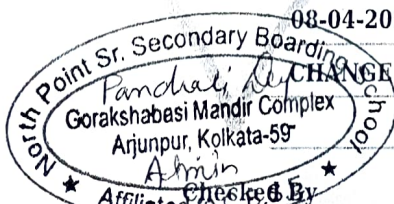 08-04-20
North Point Sr. Secondary Boarding School
CHANGE
Gorakshabasi Mandir Complex
Arjunpur, Kolkata-59
Admin
Checked By